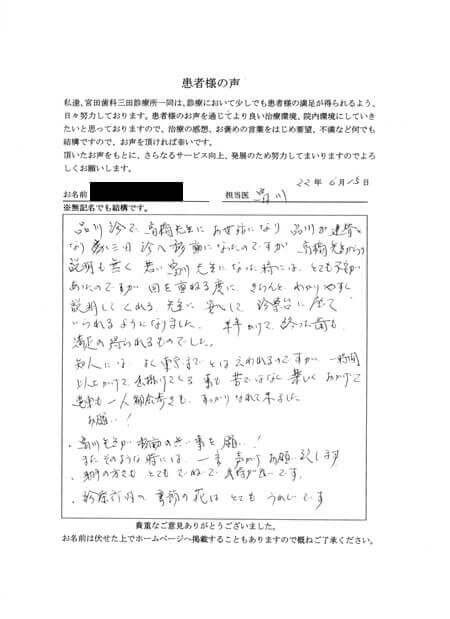 患者様の声
私達、宮田歯科三田診療所一同は、診療において少しでも患者様の満足が得られるよう、
日々努力しております。患者様のお声を通じてより良い治療環境、院内環境にしていき
たいと思っておりますので、治療の感想、お褒めの言葉をはじめ要望、不満など何でも
結構ですので、お声を頂ければ幸いです。
頂いたお声をもとに、さらなるサービス向上、発展のため努力してまいりますのでよろ
しくお願いします。
22年 6月15日
お名前 担当医 宮川
※無記名でも結構です。
品川診で 高橋先生に お世話になり 品川が
なり 三田 診へ になったのですが 高橋先生から
説明も無く 若い 宮川先生になった時には、とても不安で
あったのですが 回を重ねる度に きちんと わかりやすく
説明してくれる 先生に 安心して 診察台に 座って
いられるようになりました。 半年かけて、 歯も
満足の得られるものでした。
知人には よく まで とは 言われるのですが 一時間
以上かけて 事も 苦ではなく 楽しく おかげで
も 一人 歩きも すっかり なれて 来ました
お願い!
・宮川先生が 転勤の無い事を 願い!
またそのような時には 一言 声がけ お願い致します
・ の方々も とても ていねいで が良いです。
・診療 の 花は とても うれしいです
貴重なご意見ありがとうございました。
お名前は伏せた上でホームページへ掲載することもありますので概ねご了承ください。